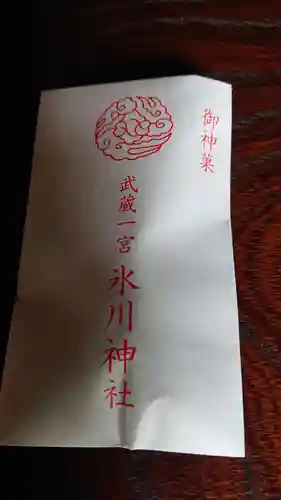 御神菓
武蔵一宮
氷川神社